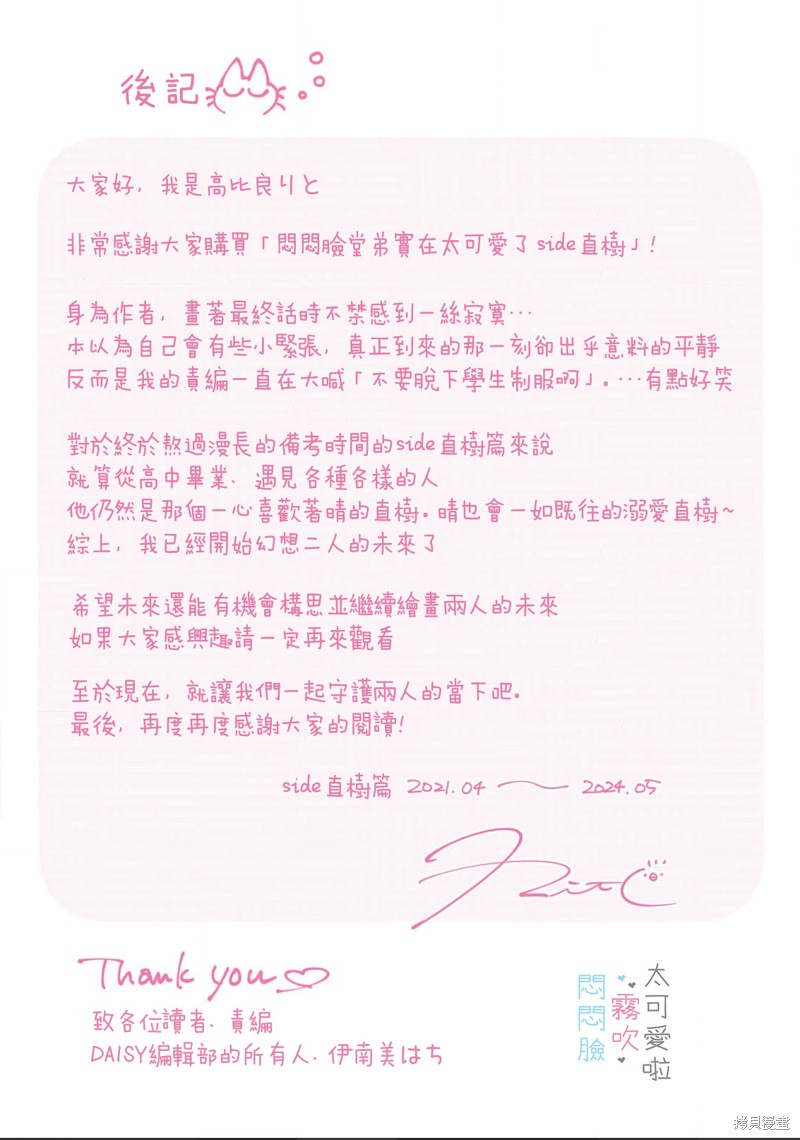 後記
大家好，我是高比良りと
非常感謝大家購買「悶悶臉堂弟實在太可愛了side直樹」！
身為作者，畫著最終話時不禁感到一絲寂寞…
本以為自己會有些小緊張，真正到來的那一刻卻出乎意料的平靜
反而是我的責編一直在大喊「不要脫下學生制服啊」。…有點好笑
對於終於熬過漫長的備考時間的side直樹篇來說
就算從高中畢業、遇見各種各樣的人
他仍然是那個一心喜歡著晴的直樹。晴也會一如既往的溺愛直樹~
綜上，我已經開始幻想二人的未來了
希望未來還能有機會構思並繼續繪畫兩人的未來
如果大家感興趣請一定再來觀看
至於現在，就讓我們一起守護兩人的當下吧。
最後，再度再度感謝大家的閱讀！
side直樹篇 2021.04 〜 2024.05
Thank you
致各位讀者、責編
DAISY編輯部的所有人、伊南美はち
太可愛啦
霧吹
悶悶臉
拷貝漫畫